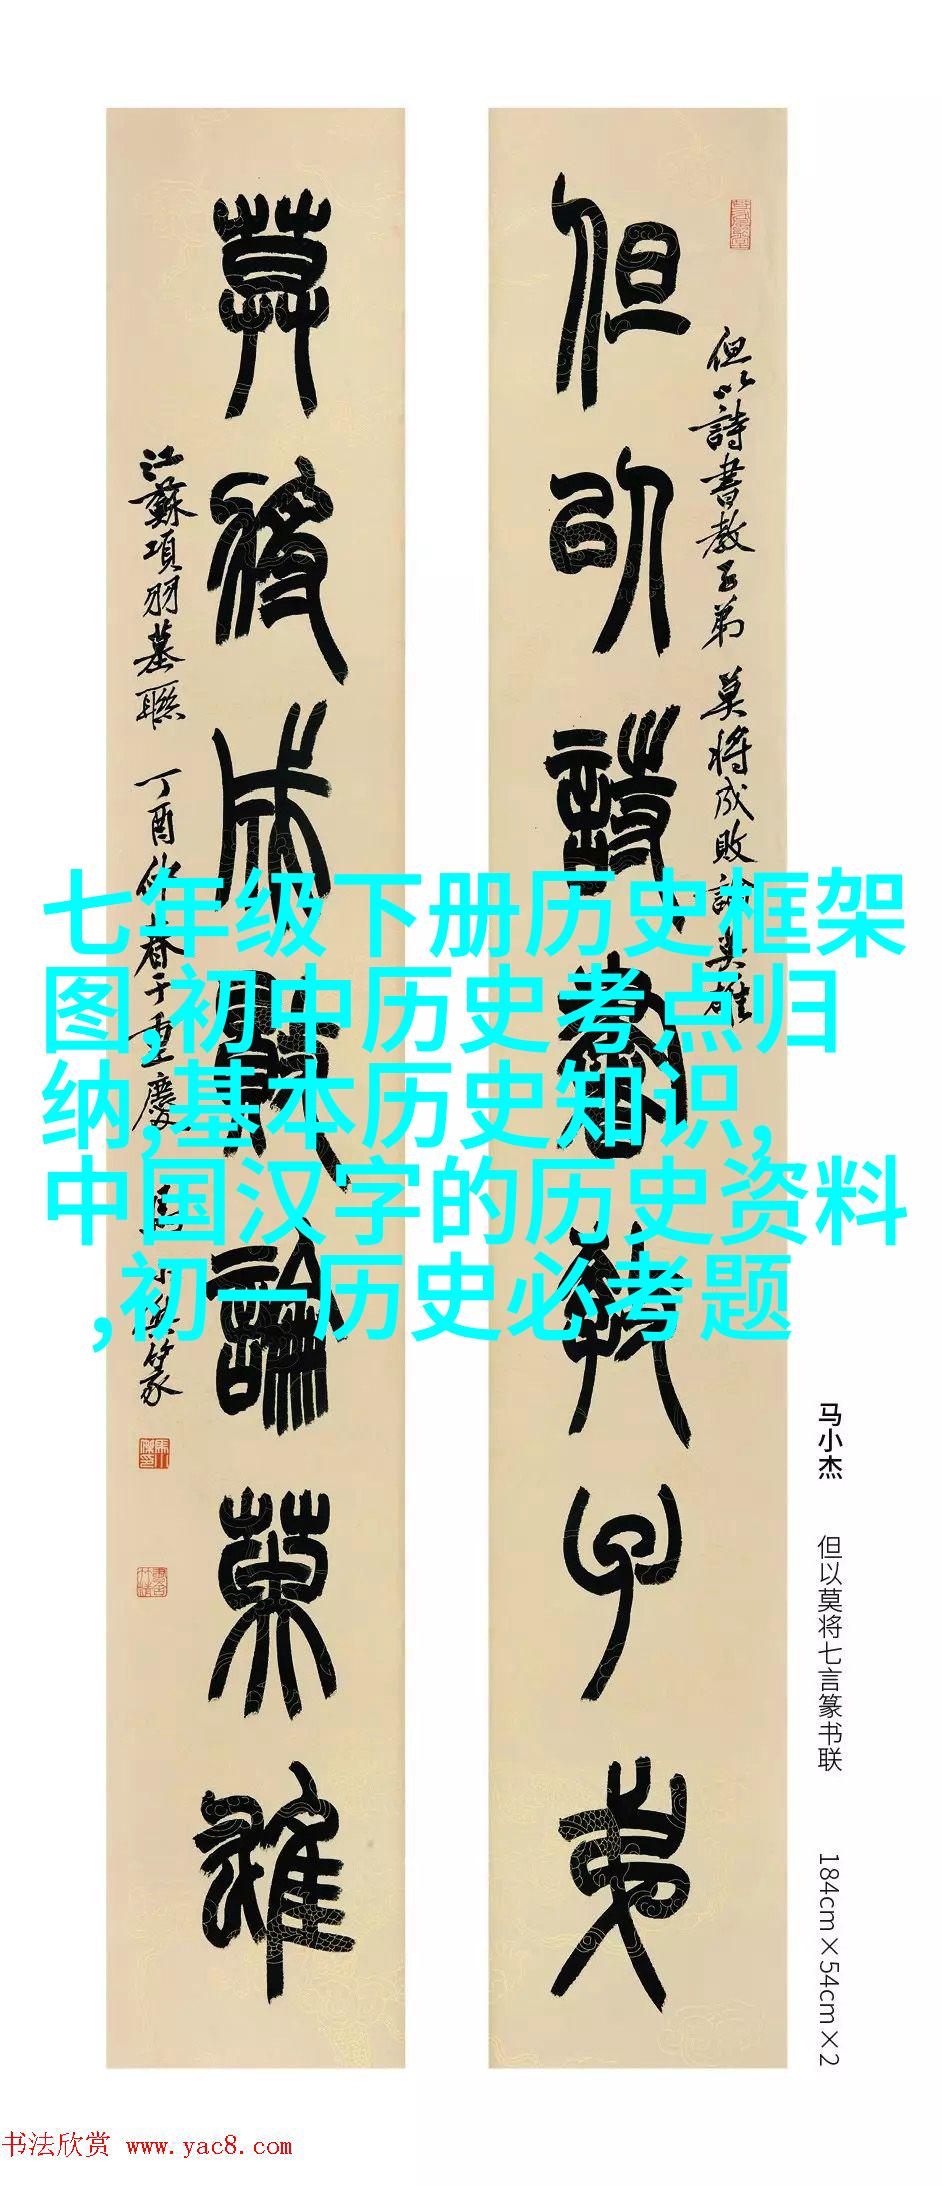 但以詩書教子弟
但以詩書教子弟 莫將成敗論英雄
莫將成敗論英雄
江蘇項羽墓聯 丁酉仲春于重慶 馬小傑篆
七年级下册历史框架
图,初中历史考点归
纳,基本历史知识,
中国汉字的历史资料
,初一历史必考题
马小杰 但以莫将七言篆书联 184cm×54cm×2
书法欣赏 www.yac8.com